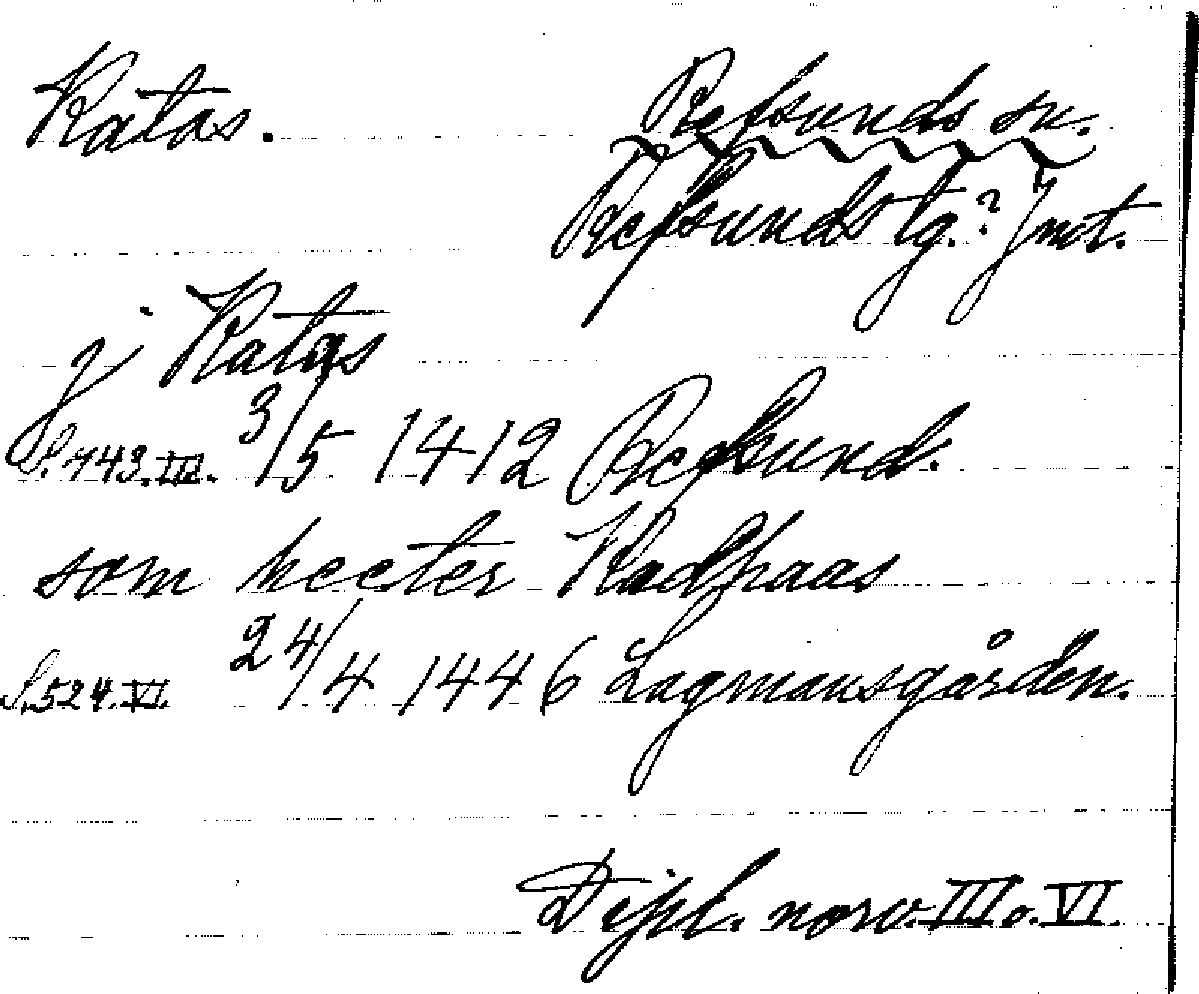 Kåtås. Refsunds sn.
Refsunds tg.? Jmt.
j Katas
S. 443. III. 3/5 1412 Refsund.
som heeter Kadhaas
S. 524. VI. 24/4 1446 Lagmansgården.
Dipl. norv. III o. VI.